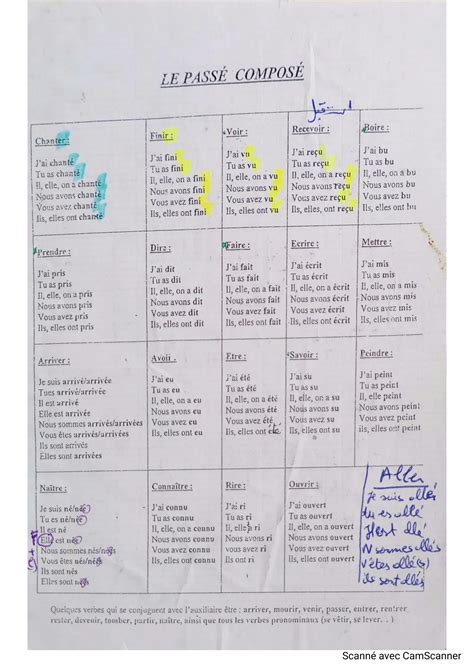 LE PASSÉ COMPOSÉ
Chanter :
J'ai chanté
Tu as chanté
Il, elle, on a chanté
Nous avons chanté
Vous avez chanté
Ils, elles ont chanté
Finir :
J'ai fini
Tu as fini
Il, elle, on a fini
Nous avons fini
Vous avez fini
Ils, elles ont fini
Voir :
J'ai vu
Tu as vu
Il, elle, on a vu
Nous avons vu
Vous avez vu
Ils, elles ont vu
Recevoir :
J'ai reçu
Tu as reçu
Il, elle, on a reçu
Nous avons reçu
Vous avez reçu
Ils, elles ont reçu
Boire :
J'ai bu
Tu as bu
Il, elle, on a bu
Nous avons bu
Vous avez bu
Ils, elles ont bu
Prendre :
J'ai pris
Tu as pris
Il, elle, on a pris
Nous avons pris
Vous avez pris
Ils, elles ont pris
Dire :
J'ai dit
Tu as dit
Il, elle, on a dit
Nous avons dit
Vous avez dit
Ils, elles ont dit
Faire :
J'ai fait
Tu as fait
Il, elle, on a fait
Nous avons fait
Vous avez fait
Ils, elles ont fait
Ecrire :
J'ai écrit
Tu as écrit
Il, elle, on a écrit
Nous avons écrit
Vous avez écrit
Ils, elles ont écrit
Mettre :
J'ai mis
Tu as mis
Il, elle, on a mis
Nous avons mis
Vous avez mis
Ils, elles ont mis
Arriver :
Je suis arrivé/arrivée
Tues arrivé/arrivée
Il est arrivé
Elle est arrivée
Nous sommes arrivés/arrivées
Vous êtes arrivés/arrivées
Ils sont arrivés
Elles sont arrivées
Avoir :
J'ai eu
Tu as eu
Il, elle, on a eu
Nous avons eu
Vous avez eu
Ils, elles ont eu
Etre :
J'ai été
Tu as été
Il, elle, on a été
Nous avons été
Vous avez été
Ils, elles ont été
Savoir :
J'ai su
Tu as su
Il, elle, on a su
Nous avons su
Vous avez su
Ils, elles ont su
Peindre :
J'ai peint
Tu as peint
Il, elle, on a peint
Nous avons peint
Vous avez peint
Ils, elles ont peint
Naître :
Je suis né/née
Tu es né/née
Il est né
Elle est née
Nous sommes nés/nées
Vous êtes nés/nées
Ils sont nés
Elles sont nées
Connaître :
J'ai connu
Tu as connu
Il, elle, on a connu
Nous avons connu
Vous avez connu
Ils, elles ont connu
Rire :
J'ai ri
Tu as ri
Il, elle, on a ri
Nous avons ri
Vous avez ri
Ils, elles ont ri
Ouvrir :
J'ai ouvert
Tu as ouvert
Il, elle, on a ouvert
Nous avons ouvert
Vous avez ouvert
Ils, elles ont ouvert
Aller
Je suis allé
tu es allé
Il est allé
N sommes allés
V êtes allé(s)
ils sont allés
Quelques verbes qui se conjuguent avec l'auxiliaire être : arriver, mourir, venir, passer, entrer, rentrer
rester, devenir, tomber, partir, naître, ainsi que tous les verbes pronominaux (se vêtir, se lever. . )
Scanné avec CamScanner